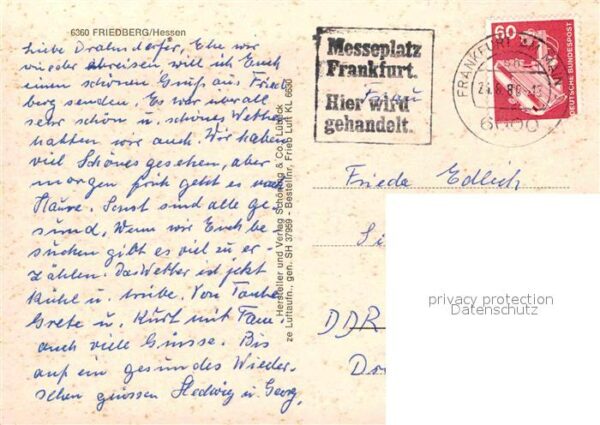 6360 FRIEDBERG/Hessen
Liebe Drahmdorfer, Ehe wir
wieder abreisen will ich Euch
einen schönen Gruß aus Fried
berg senden. Es war überall
sehr schön u. schönes Wetter
hatten wir auch. Wir haben
viel Schönes gesehen, aber
morgen früh geht es nach
Hause. Sonst sind alle ge-
sund, Wenn wir Euch be
suchen gibt es viel zu er-
zählen. Das Wetter ist jetzt
kühl u. trübe. Von Tante
Grete u. Kurt mit Fam.
auch viele Grüsse. Bis
auf ein gesundes Wieder-
sehen grüssen Hedwig u. Georg,
Hersteller und Verlag Schöning & Co. Lübeck
ze Luftaufn., gen. SH 37959 - Bestellnr. Frieb Luft KL 6630
Messeplatz
Frankfurt.
Hier wird
gehandelt.
Frau
FRANKFURT AM MAIN
6000
60
DEUTSCHE BUNDESPOST
Frieda Edlich
DDR
privacy protection
Datenschutz